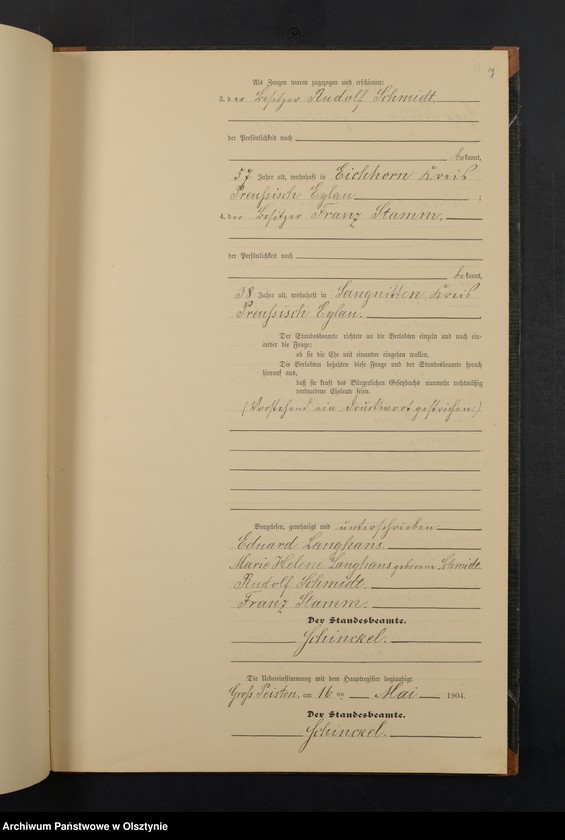 7
Als Zeugen waren zugezogen und erschienen:
3. der Besitzer Rudolf Schmidt.
der Persönlichkeit nach
bekannt,
57 Jahre alt, wohnhaft in Eichhorn Kreis
Preußisch Eylau ;
4. der Besitzer Franz Stamm.
der Persönlichkeit nach
bekannt,
38 Jahre alt, wohnhaft in Sangnitten Kreis
Preußisch Eylau.
Der Standesbeamte richtete an die Verlobten einzeln und nach ein-
ander die Frage:
ob sie die Ehe mit einander eingehen wollen.
Die Verlobten bejahten diese Frage und der Standesbeamte sprach
hierauf aus,
daß sie kraft des Bürgerlichen Gesetzbuchs nunmehr rechtmäßig
verbundene Eheleute seien.
(Vorstehend ein Druckwort gestrichen.)
Vorgelesen, genehmigt und unterschrieben
Eduard Langhans.
Marie Helene Langhans geborene Schmidt.
Rudolf Schmidt.
Franz Stamm.
Der Standesbeamte.
Schinckel.
Die Uebereinstimmung mit dem Hauptregister beglaubigt.
Groß Peisten, am 16 ten Mai 1904.
Der Standesbeamte.
Schinckel.
Archiwum Państwowe w Olsztynie